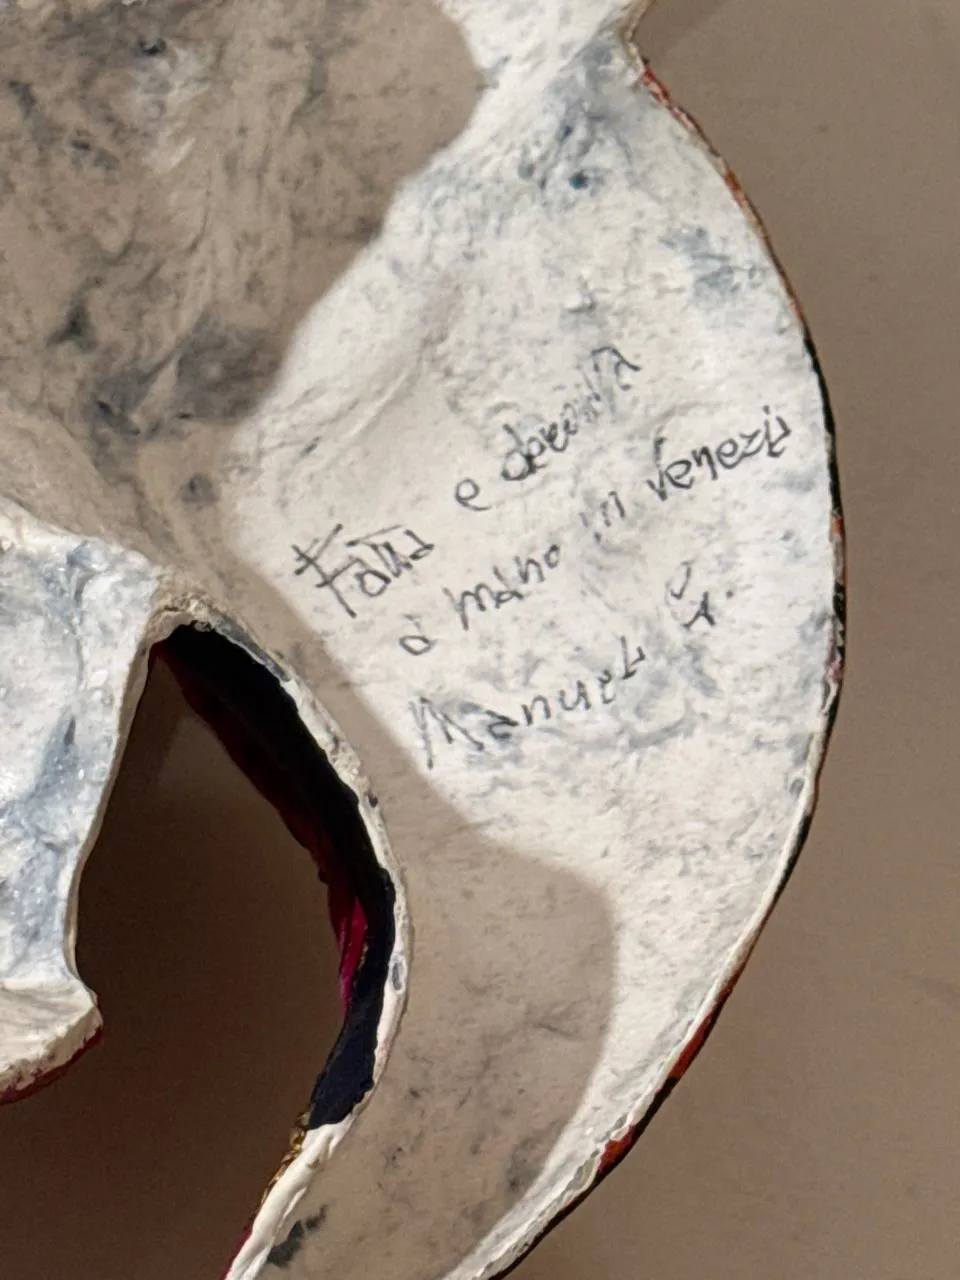 Fatta e decorata
a mano in venezia
Manuela G.